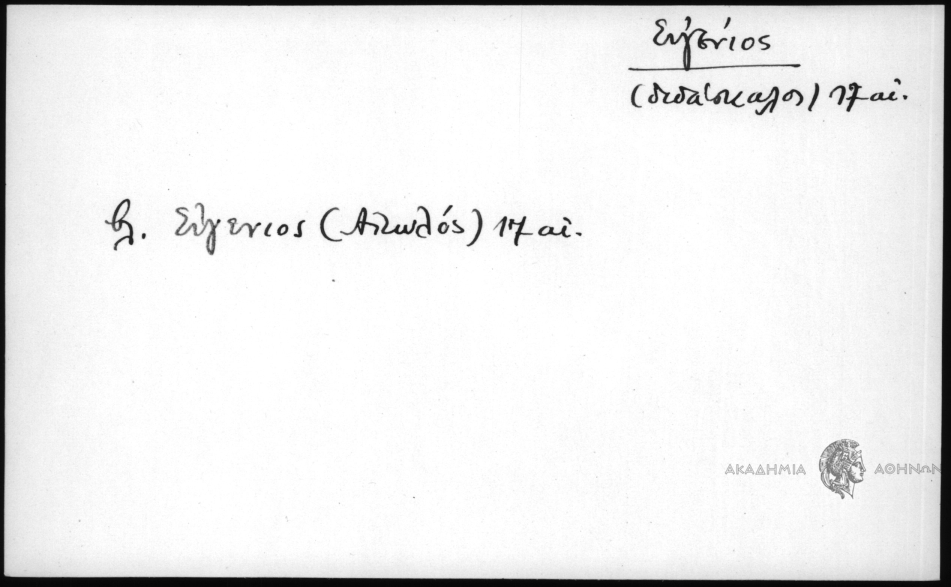 Εὐγένιος
(διδάσκαλος) 17 αἰ.
βλ. Εὐγένιος (Αἰτωλός) 17 αἰ.
ΑΚΑΔΗΜΙΑ ΑΘΗΝΩΝ